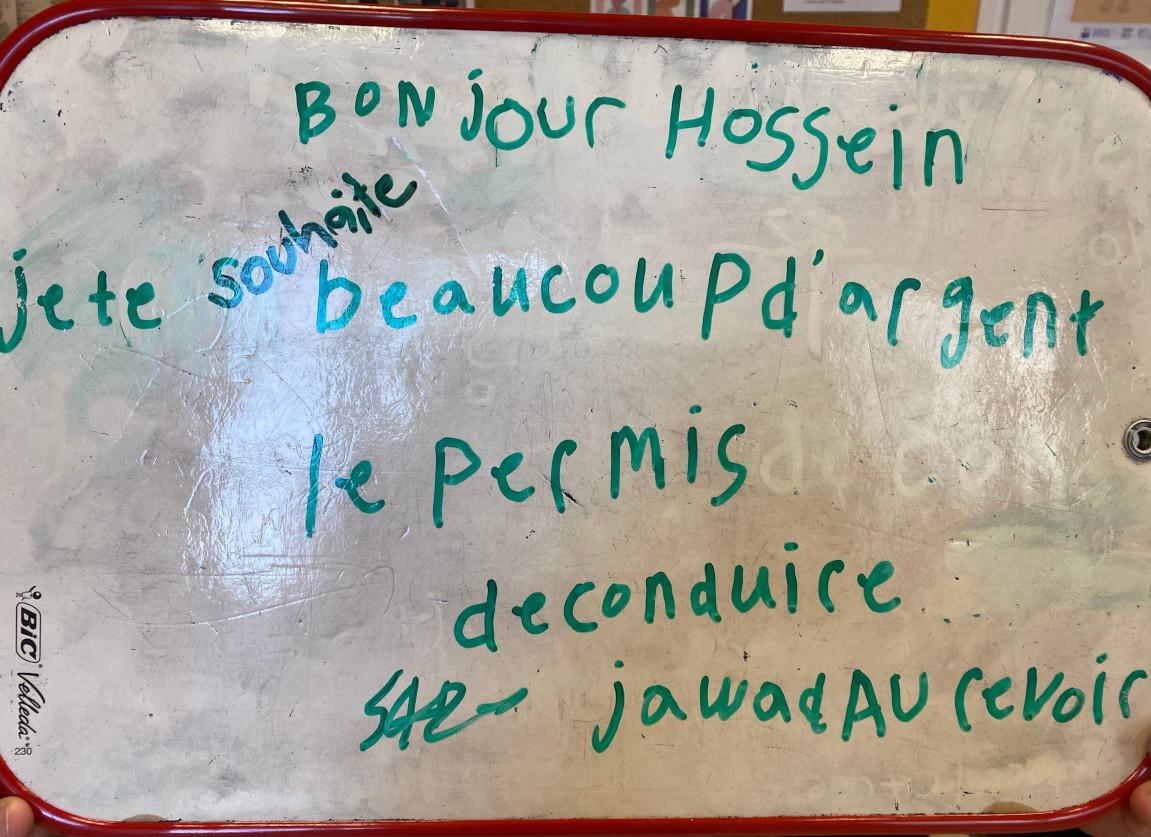 BONjour Hossein
jete souhaite beaucoup d'argent
le permis
deconduire
jawad AU revoir
BiC Velleda
230